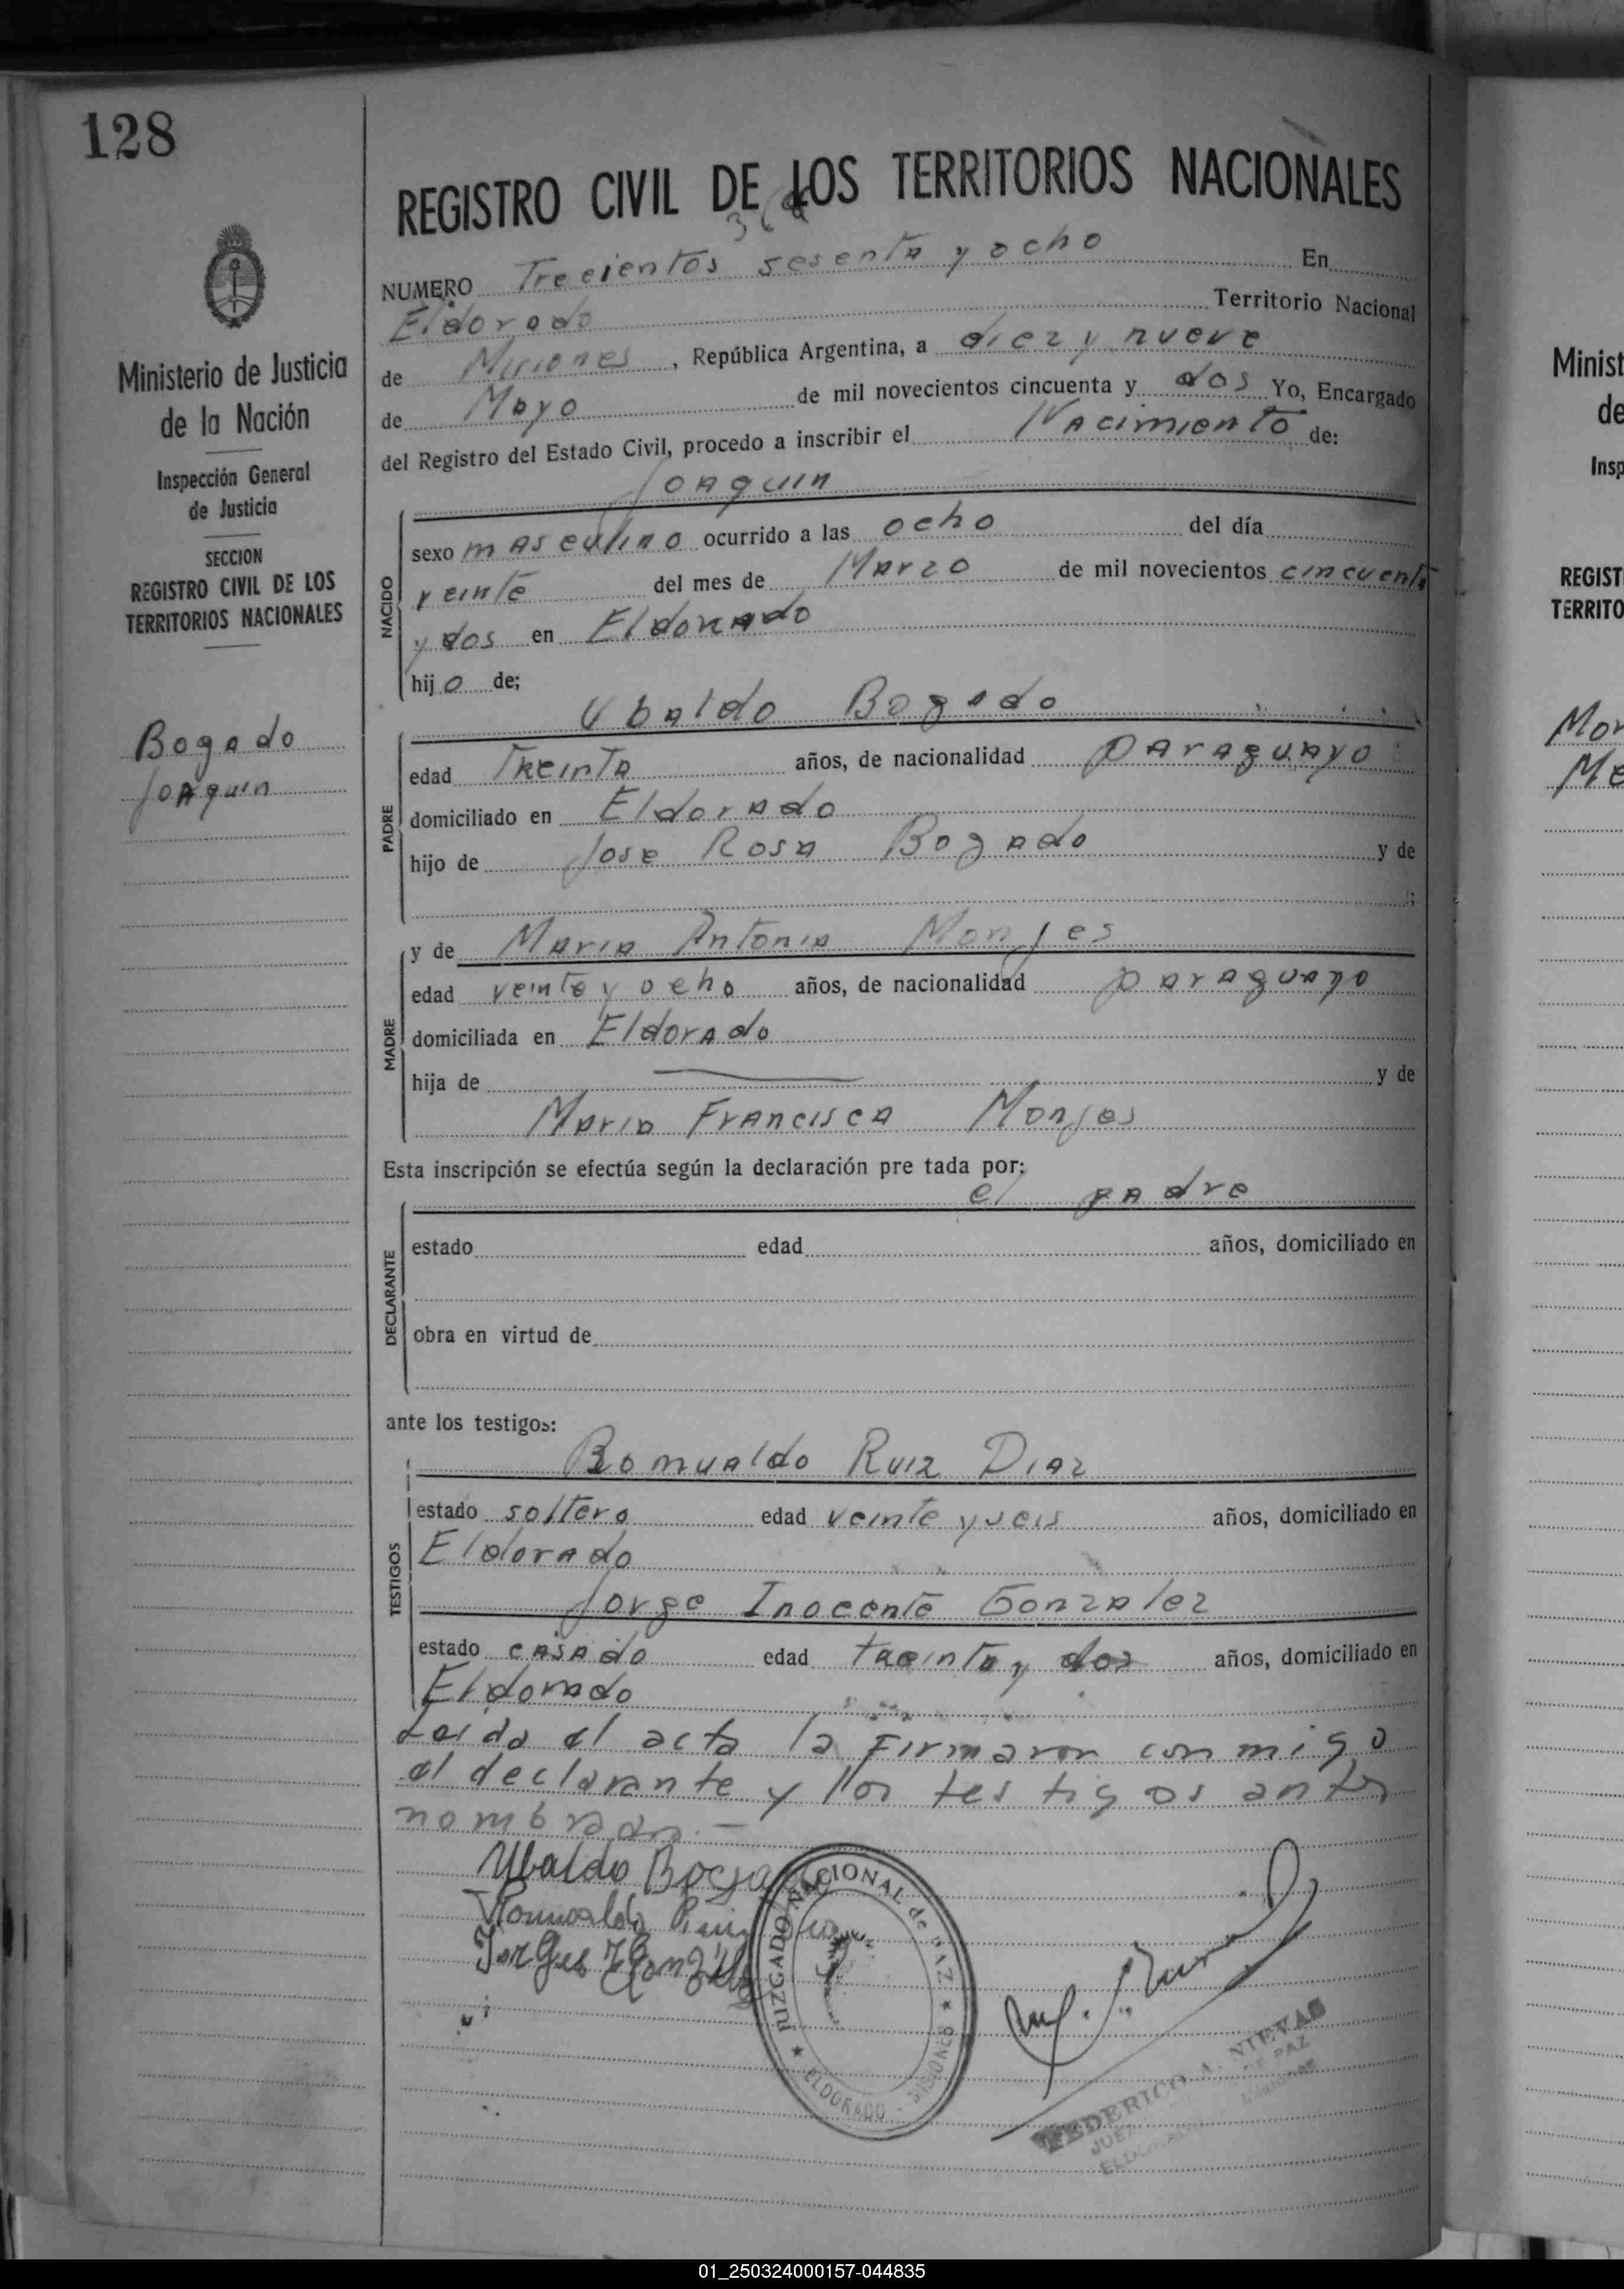 128
REGISTRO CIVIL DE LOS TERRITORIOS NACIONALES
368
NUMERO Trecientos sesenta y ocho En
Eldorado Territorio Nacional
de Misiones, República Argentina, a diez y nueve
de Mayo de mil novecientos cincuenta y dos Yo, Encargado
del Registro del Estado Civil, procedo a inscribir el Nacimiento de:
Joaquin
Ministerio de Justicia
de la Nación
Inspección General
de Justicia
SECCION
REGISTRO CIVIL DE LOS
TERRITORIOS NACIONALES
Bogado
Joaquin
NACIDO
sexo masculino ocurrido a las ocho del día
veinte del mes de Marzo de mil novecientos cincuenta
y dos en Eldorado
hijo de;
Ubaldo Bogado
PADRE
edad Treinta años, de nacionalidad paraguayo
domiciliado en Eldorado
hijo de Jose Rosa Bogado y de
;
y de Maria Antonia Monjes
MADRE
edad veinte y ocho años, de nacionalidad paraguayo
domiciliada en Eldorado
hija de y de
Maria Francisca Monjes
Esta inscripción se efectúa según la declaración pre tada por:
el padre
DECLARANTE
estado edad años, domiciliado en
obra en virtud de
ante los testigos:
Romualdo Ruiz Diaz
TESTIGOS
estado soltero edad veinte y seis años, domiciliado en
Eldorado
Jorge Inocente Gonzalez
estado casado edad treinta y dos años, domiciliado en
Eldorado
Leida el acta la firmaron conmigo
el declarante y los testigos antes
nombrados.-
Ubaldo Bogado
Romualdo Ruiz Diaz
Jorge I Gonzalez
JUZGADO NACIONAL de PAZ
ELDORADO - MISIONES
FEDERICO A. NIEVAS
JUEZ DE PAZ
ELDORADO Misiones
Minist
de
Insp
REGIST
TERRITO
Mon
Me
01_250324000157-044835